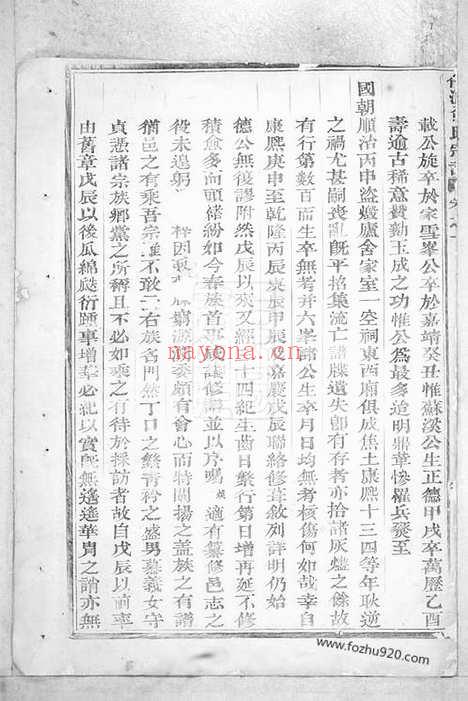 載公旋卒於家雪峯公卒於嘉靖癸丑惟蘇溪公生正德甲戌卒萬曆乙酉
壽逾古稀意贊勷玉成之功惟公爲最多迨明鼎革慘罹兵發至
國朝順治丙申盜燬廬舍家室一空祠東西廂俱成焦土康熙十三四等年耿逆
之禍尤甚嗣喪亂既平招集流亡譜牒遺失卽有存者亦拾諸灰燼之餘故
有行第數百而生卒無者并六峯諸公生卒月日均無考核傷何如哉幸自
康熙庚申至乾隆丙辰庚辰甲辰之嘉慶戊辰聯絡修葺敘列詳明仍始
德公無復謬附然戊辰以來又經二十四紀生齒日繁行第日增再延不修
積愈多而頭緒紛如今春族首平友議修譜並以序囑 適有纂修邑志之
役未遑躬 梓因 窮源委頗有會心而特闡揚之蓋族之有譜
猶邑之有乘吾宗雖不敢二右族名門然丁口之繁青衿之盛男慕義女守
貞悉諸宗族鄉黨之所稱且不必如志乘之有待於採訪者故自戊辰以前率
由舊章戊辰以後瓜綿瓞衍踵事增華必紀以實既無遙遙華胄之誚亦無
www.fozhu920.com
nayona.cn